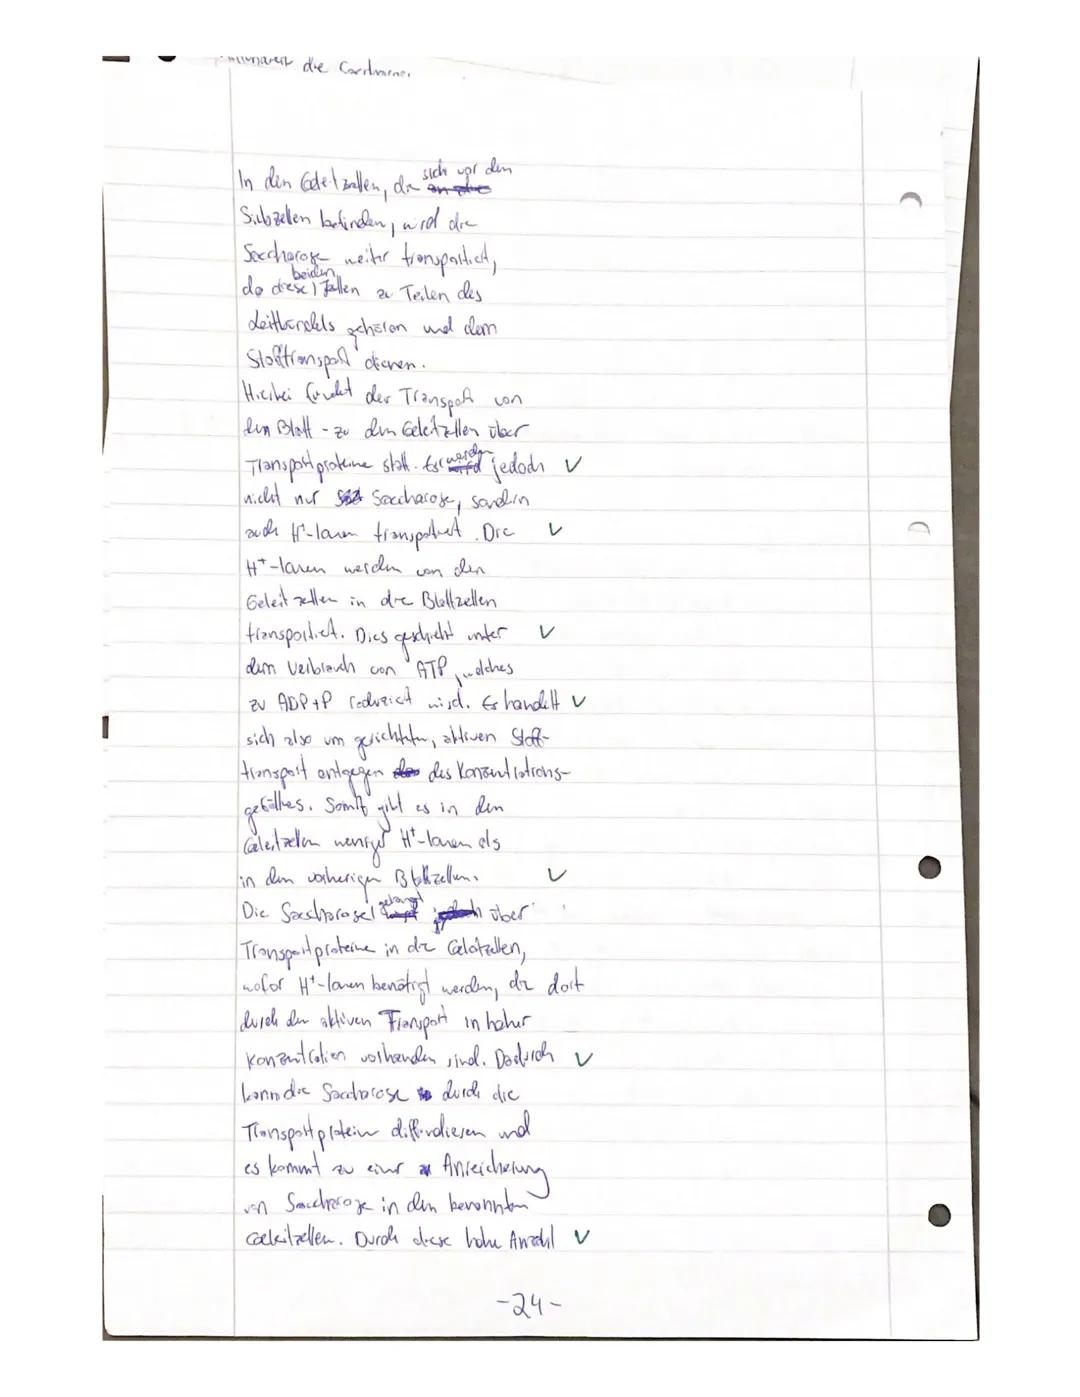 die
In den Geleitzellen, die sich vor den
Siebzellen befinden, wird die
Saccharose weiter transportiert,
da diese beiden Zellen zu Teilen des
Leitbündels gehören und dem
Stofftransport dienen.
Hierbei findet der Transport von
den Blatt - zu den Geleitzellen über
Transportproteine statt. Es werden jedoch
nicht nur Saccharose, sondern
auch H⁺-Ionen transportiert. Die
H⁺-Ionen werden von den
Geleitzellen in die Blattzellen
transportiert. Dies geschieht unter
dem Verbrauch von ATP, welches
zu ADP+P reduziert wird. Es handelt
sich also um gerichteten, aktiven Stoff-
transport entgegen des Konzentrations-
gefälles. Somit gibt es in den
Geleitzellen weniger H⁺-Ionen als
in den vorherigen Blattzellen.
Die Saccharose gelangt über
Transportproteine in die Geleitzellen,
wofür H⁺-Ionen benötigt werden, die dort
durch den aktiven Transport in hoher
Konzentration vorhanden sind. Dadurch
kann die Saccharose durch die
Transportprotein diffundieren und
es kommt zu einer Anreicherung
von Saccharose in den benannten
Geleitzellen. Durch diese hohe Anzahl
-24-